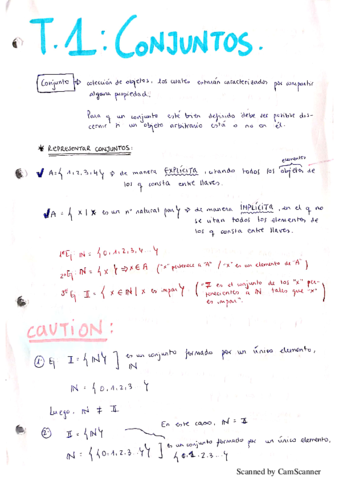 T.1: CONJUNTOS.
Conjunto → colección de objetos, los cuales estarán caracterizados por compartir
alguna propiedad.
Para q un conjunto esté bien definido debe ser posible dis-
cernir si un objeto arbitrario está o no en él.
* REPRESENTAR CONJUNTOS:
elementos
✓ A={1,2,3,4} → de manera EXPLÍCITA, citando todos los objetos de
los q consta entre llaves.
✓ A = {x | x es un nº natural par} → de manera IMPLÍCITA, en el q no
se citan todos los elementos de
los q consta entre llaves.
1º Ej: IN = {0,1,2,3,4... }
2º Ej: IN = {x } → x∈A ("x" pertenece a "A" / "x" es un elemento de "A")
3º Ej: I = {x ∈ IN | x es impar} (I es el conjunto de los "x" per-
tenecientes a IN tales que "x"
es impar".
CAUTION:
1: Ej I = {IN} ] es un conjunto formado por un único elemento,
IN
IN = {0,1,2,3 ... }
Luego, IN ≠ I
En este caso, IN = I
2: I = {IN}
IN = {{0,1,2,3...}} ] es un conjunto formado por un único elemento,
{0,1,2,3...}
Scanned by CamScanner